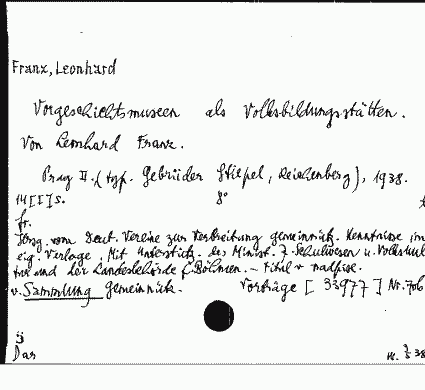 Franz, Leonhard
Vorgeschichtsmuseen als Volksbildungsstätten.
Von Leonhard Franz.
Prag II. (typ. Gebrüder Stiepel, Reichenberg), 1938.
14 [I] S. 8°
fr.
Hrsg. vom Deut. Vereine zur Verbreitung gemeinnütz. Kenntnisse im
eig. Verlage, Mit Unterstütz. des Minist. f. Schulwesen u. Volkskul
tur und der Landesbehörde f. Böhmen. – Titul v nadpise.
v. Sammlung gemeinnütz. Vorträge [33977] Nr. 706
Dar
38